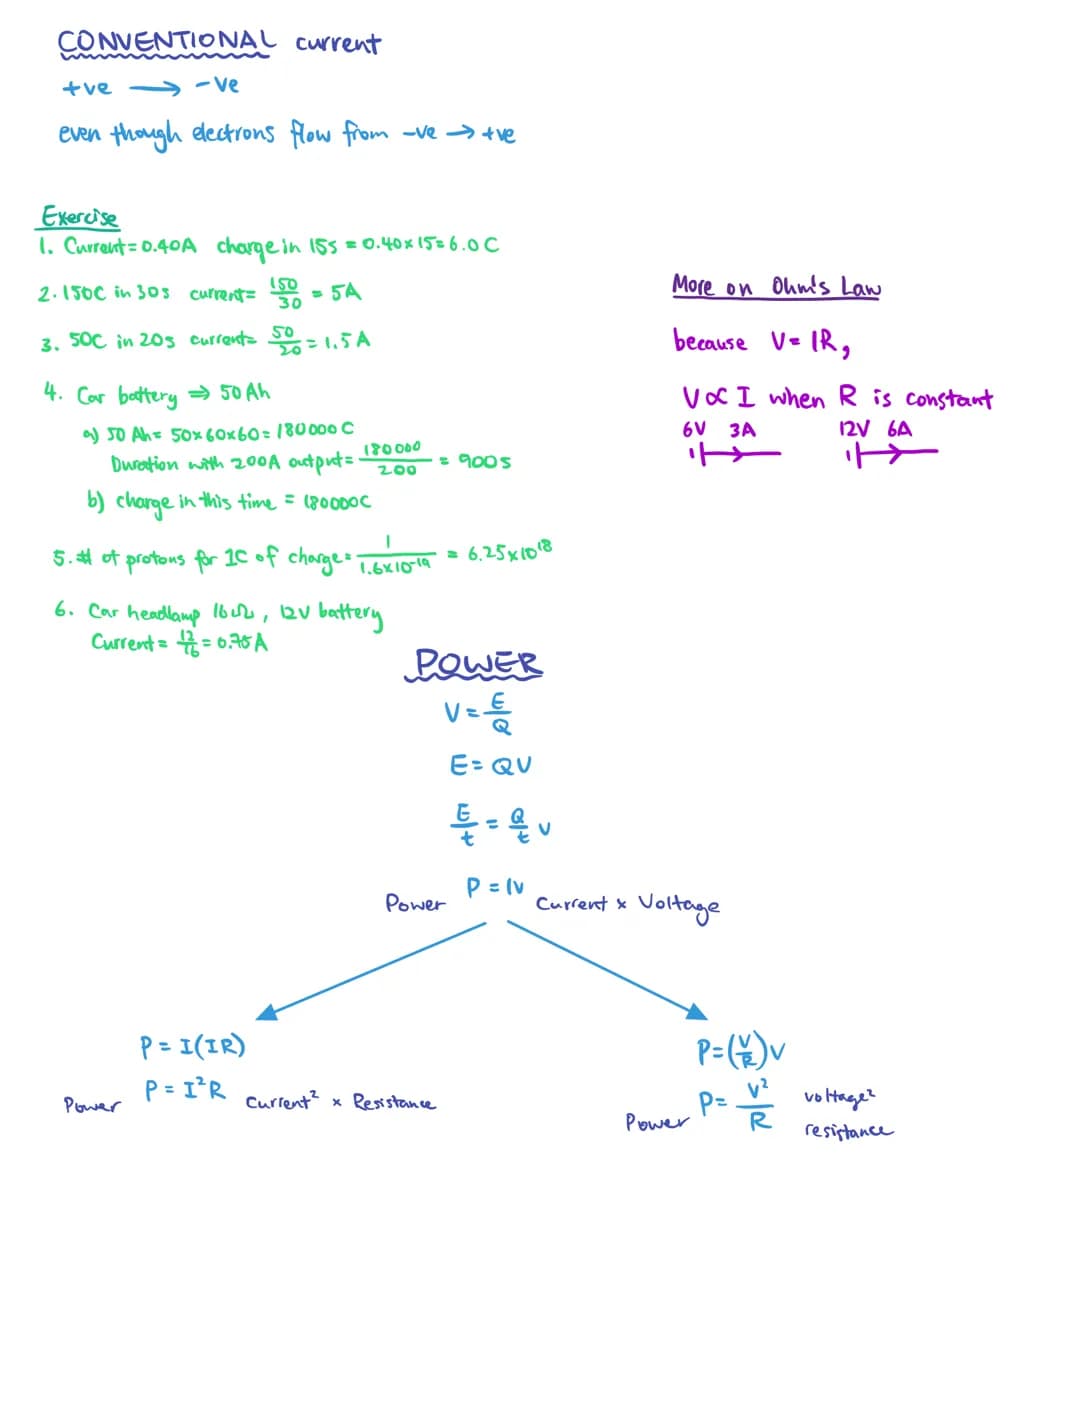 CONVENTIONAL current
+ve → -ve
even though electrons flow from -ve → +ve
Exercise
1. Current = 0.40A charge in 15s = 0.40×15 = 6.0 C
2. 150C in 30s current = 150/30 = 5A
3. 50C in 20s current = 50/20 = 1.5 A
4. Car battery ⇒ 50 Ah
a) 50 Ah = 50×60×60 = 180000 C
Duration with 200A output = 180000/200 = 900s
b) charge in this time = 180000C
5. # of protons for 1C of charge = 1/1.6×10^-19 = 6.25×10^18
6. Car headlamp 16Ω, 12V battery
Current = 12/16 = 0.75 A
More on Ohm's Law
because V = IR,
V ∝ I when R is constant
6V 3A 12V 6A
POWER
V = E/Q
E = QV
E/t = Q/t V
P = IV
Power Current × Voltage
P = I(IR)
P = I²R
Power Current² × Resistance
P = (V/R)V
P = V²/R
Power voltage²
resistance